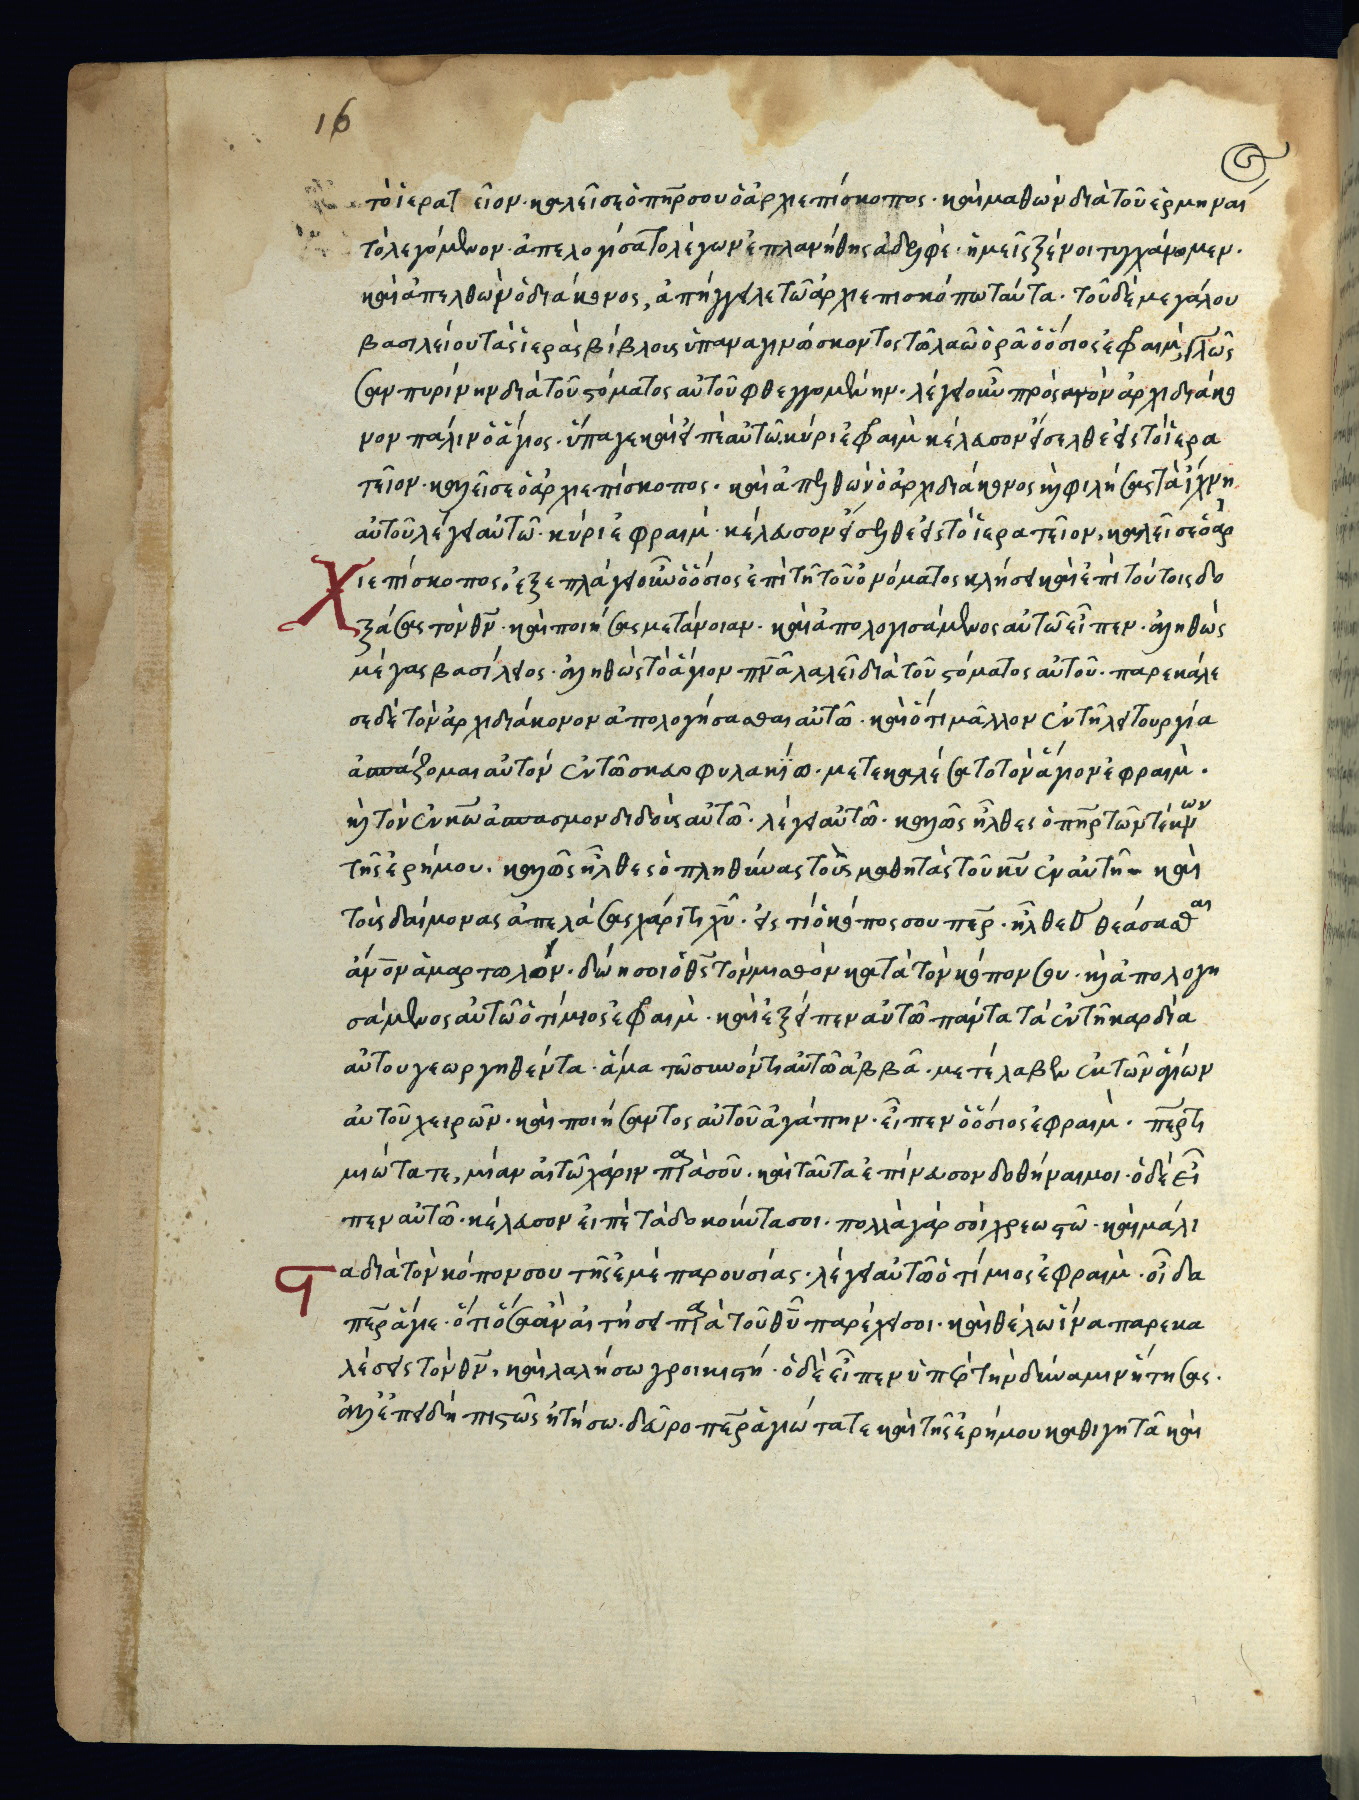 16
τὸ ἱερατεῖον· καλεῖ σε ὁ πηρ σου ὁ ἀρχιεπίσκοπος· καὶ μαθὼν διὰ τοῦ ἑρμηναί
τὸ λεγόμενον· ἀπελογίσατο λέγων ἐπλανήθης ἀδελφέ· ἡμεῖς ξένοι τυγχάνομεν·
καὶ ἀπελθὼν ὁ διάκονος, ἀπήγγειλε τῶ ἀρχιεπισκόπω ταῦτα· τοῦ δὲ μεγάλου
βασιλείου τὰς ἱερὰς βίβλους ὑπαναγινώσκοντος τῶ λαῶ ὁρᾶ ὁ ὅσιος ἐφραὶμ, γλῶς
σαν πυρίνην διὰ τοῦ στόματος αὐτοῦ φθεγγομένην· λέγει οὖν πρὸς αὐτὸν ἀρχιδιάκο
νον πάλιν ὁ ἅγιος· ὕπαγε καὶ εἰπὲ αὐτῶ· κύρι ἐφραὶμ κέλευσον εἴσελθε εἰς τὸ ἱερα
τεῖον· καλεῖ σε ὁ ἀρχιεπίσκοπος· καὶ ἀπελθὼν ὁ ἀρχιδιάκονος καὶ φιλήσας τὰ ἴχνη
αὐτοῦ λέγει αὐτῶ· κύρι ἐφραὶμ· κέλευσον εἴσελθε εἰς τὸ ἱερατεῖον, καλεῖ σε ὁ ἀρ
χιεπίσκοπος, ἐξεπλάγει οὖν ὁ ὅσιος ἐπὶ τῇ τοῦ ὀνόματος κλήσει καὶ ἐπὶ τούτοις δο
ξάσας τὸν θν· καὶ ποιήσας μετάνοιαν· καὶ ἀπολογισάμενος αὐτῶ εἶπεν· ἀληθῶς
μέγας βασίλειος· ἀληθῶς τὸ ἅγιον πνα λαλεῖ διὰ τοῦ στόματος αὐτοῦ· παρεκάλε
σε δὲ τὸν ἀρχιδιάκονον ἀπολογήσασθαι αὐτῶ· καὶ ὅτι μᾶλλον ἐν τῇ λειτουργία
ἀσπάζομαι αὐτὸν ἐν τῶ σκευοφυλακίω· μετεκαλέσατο τὸν ἅγιον ἐφραὶμ·
καὶ τὸν ἐν κω ἀσπασμὸν διδοὺς αὐτῶ· λέγει αὐτῶ· καλῶς ἦλθες ὁ πηρ τῶν τέκνων
τῆς ἐρήμου· καλῶς ἦλθες ὁ πληθύνας τοὺς μαθητὰς τοῦ κυ ἐν αὐτῇ· καὶ
τοὺς δαίμονας ἀπελάσας χάριτι χυ· εἰς τί ὁ κόπος σου περ· ἦλθες θεάσασθαι
ἀνον ἁμαρτωλόν· δώη σοι ὁ θς τὸν μισθὸν κατὰ τὸν κόπον σου· καὶ ἀπολογη
σάμενος αὐτῶ ὁ τίμιος ἐφραὶμ· καὶ ἐξεῖπεν αὐτῶ πάντα τὰ ἐν τῇ καρδία
αὐτου γεωργηθέντα· ἅμα τῶ συνόντι αὐτῶ ἀββᾶ· μετέλαβεν ἐκ τῶν ἁγίων
αὐτοῦ χειρῶν· καὶ ποιήσαντος αὐτοῦ ἀγάπην· εἶπεν ὁ ὅσιος ἐφραὶμ· περ τι
μιώτατε, μίαν αἰτῶ χάριν παρὰ σοῦ· καὶ ταῦτα ἐπίνευσον δοθῆναι μοι· ὁ δὲ εἶ
πεν αὐτῶ· κέλευσον εἰπὲ τὰ δοκοῦντα σοι· πολλὰ γὰρ σοὶ χρεωστῶ· καὶ μάλι
στα διὰ τὸν κόπον σου τῆς ἐμὲ παρουσίας· λέγει αὐτῶ ὁ τίμιος ἐφραὶμ· οἶδα
περ ἅγιε· ὅτι ὅσα ἂν αἰτήσει παρὰ τοῦ θυ παρέχει σοι· καὶ θέλω ἵνα παρεκα
λέσεις τὸν θν, καὶ λαλήσω γροικιστή· ὁ δὲ εἶπεν ὑπὲρ τὴν δύναμιν ἤτησας·
ἀλλ' ἐπειδὴ πιστῶς ἠτήσω· δεῦρο περ ἁγιώτατε καὶ τῆς ἐρήμου καθιγητὰ καὶ